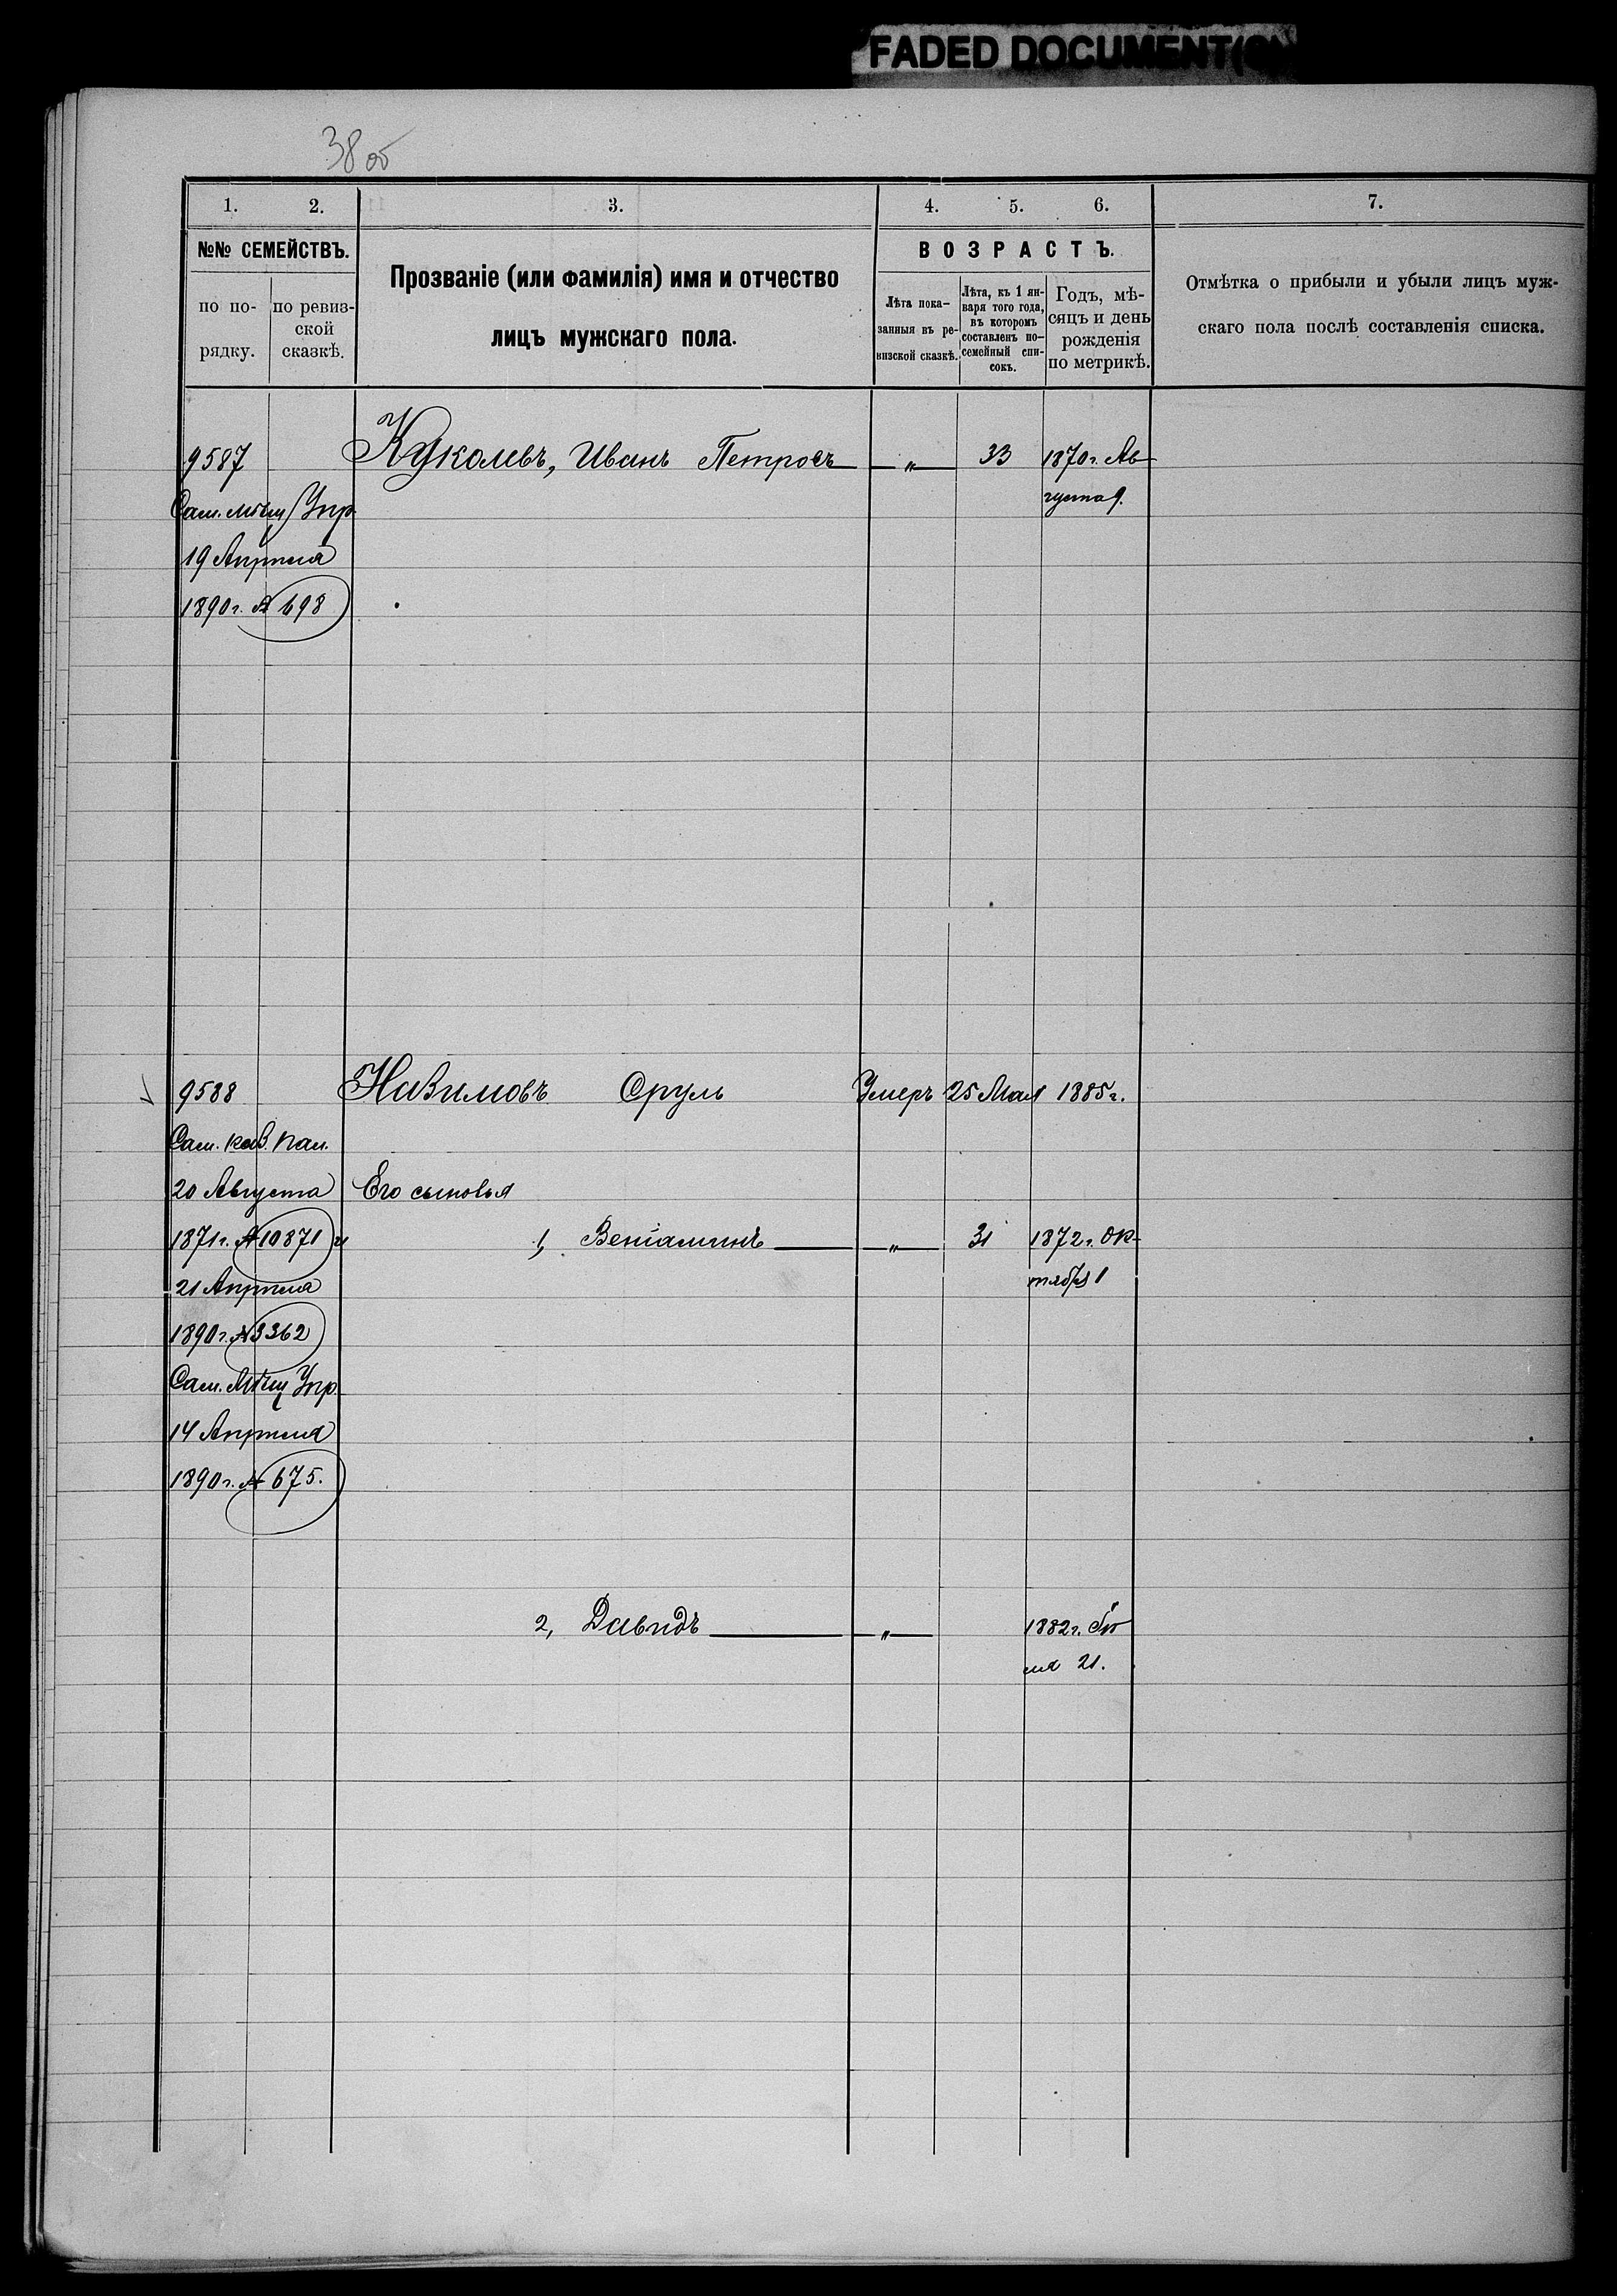 FADED DOCUMENT(S)
38 об
1. 2. 3. 4. 5. 6. 7.
№№ СЕМЕЙСТВЪ.
по по-
рядку.
по ревиз-
ской
сказкѣ.
Прозваніе (или фамилія) имя и отчество
лицъ мужскаго пола.
ВОЗРАСТЪ.
Лѣта пока-
занныя въ ре-
визской сказкѣ.
Лѣта, къ 1 ян-
варя того года,
въ которомъ
составленъ по-
семейный спи-
сокъ.
Годъ, мѣ-
сяцъ и день
рожденія
по метрикѣ.
Отмѣтка о прибыли и убыли лицъ муж-
скаго пола послѣ составленія списка.
9587 Иванъ Петровъ — „ — 33 1870 г. Ав-
густа 9.
Сам. Мѣщ. Упр.
19 Апрѣля
1890 г. № 698
9588 Сруль Умеръ 25 Мая 1885 г.
Сам. каз. пал.
20 Августа Его сыновья
1871 г. № 10871 и 1, Веніаминъ — „ — 31 1872 г. Ок-
тября 1
21 Апрѣля
1890 г. № 3362
Сам. Мѣщ. Упр.
14 Апрѣля
1890 г. № 675.
2, Давидъ — „ — 1882 г.
21.